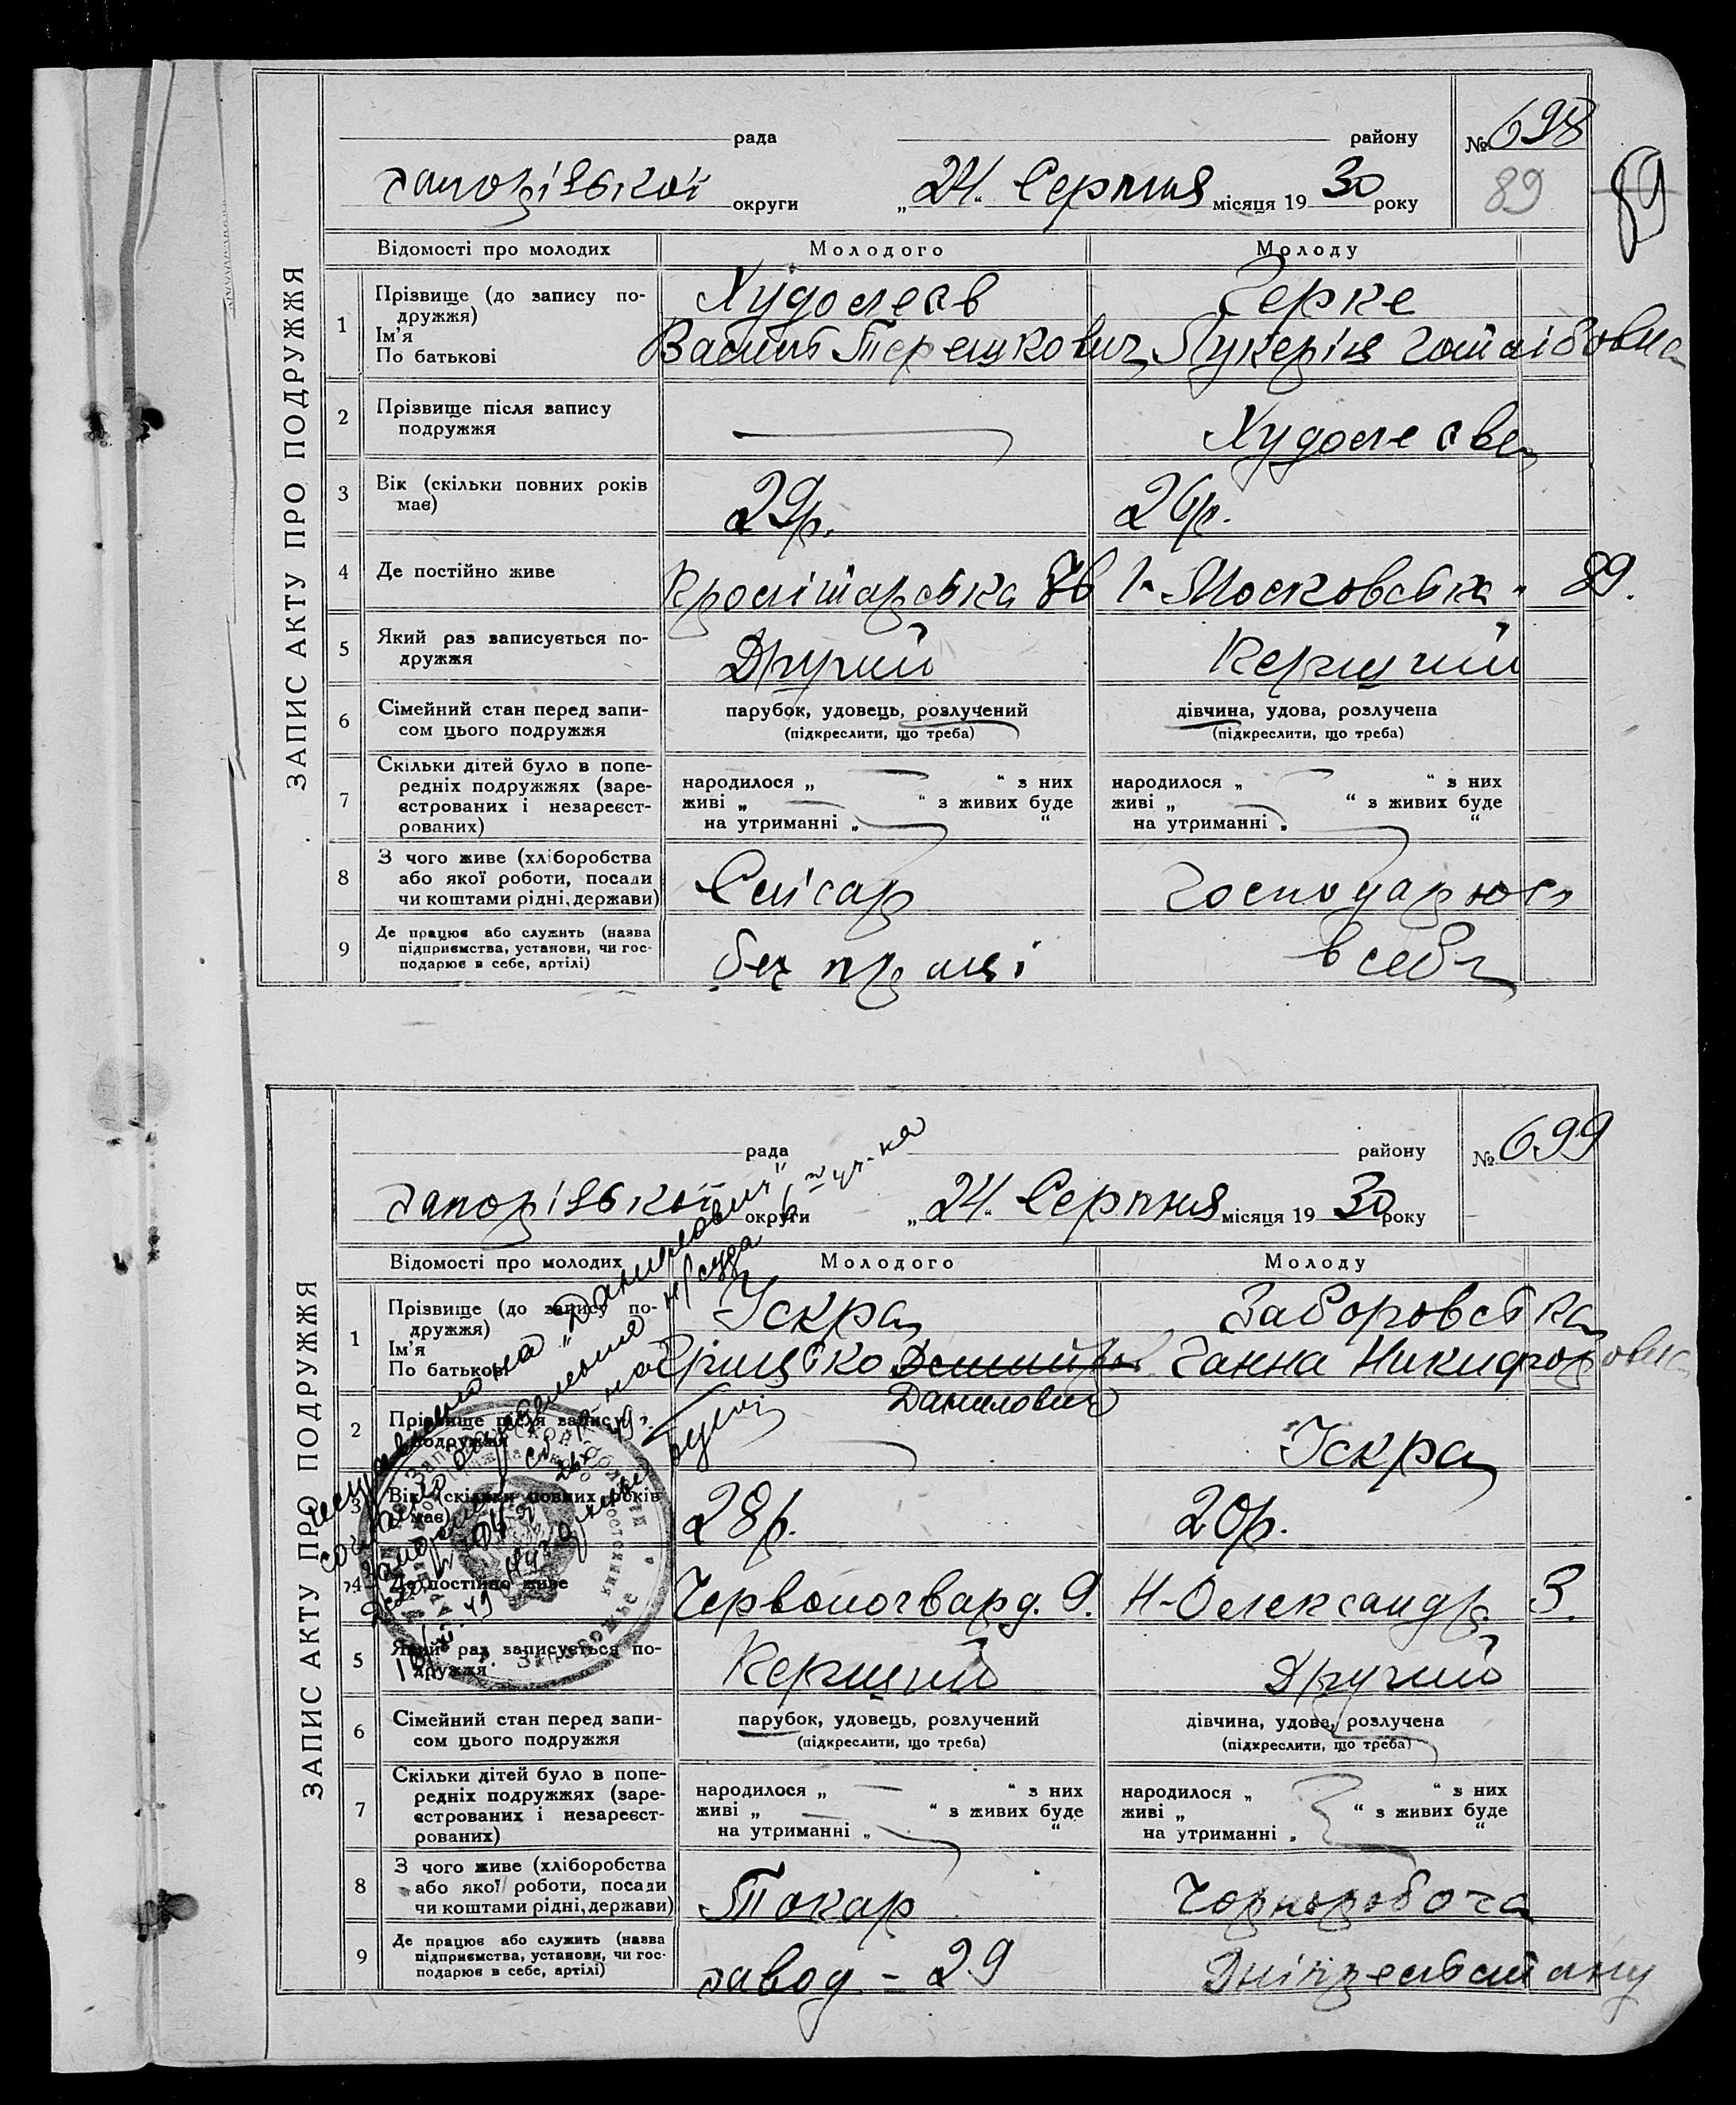 ЗАПИС АКТУ ПРО ПОДРУЖЖЯ
рада району № 698
Запорізької округи „24“ Серпня місяця 1930 року 89
89
Відомості про молодих Молодого Молоду
1 Прізвище (до запису по-
дружжя)
Ім'я
По батькові
Худолеєв
Василь Терешкович
Герке
Лукерія Готлібовна
2 Прізвище після запису
подружжя
Худолеєва
3 Вік (скільки повних років
має)
29р. 26р.
4 Де постійно живе
Московська 89.
5 Який раз записується по-
дружжя
Другий Перщий
6 Сімейний стан перед запи-
сом цього подружжя
парубок, удовець, розлучений
(підкреслити, що треба)
дівчина, удова, розлучена
(підкреслити, що треба)
7 Скільки дітей було в попе-
редніх подружжях (заре-
єстрованих і незареєст-
рованих)
народилося „ “ з них
живі „ “ з живих буде
на утриманні „ “
народилося „ “ з них
живі „ “ з живих буде
на утриманні „ “
8 З чого живе (хліборобства
або якої роботи, посади
чи коштами рідні, держави)
Слісар
9 Де працює або служить (назва
підприємства, установи, чи гос-
подарює в себе, артілі)
без праці в себе
ЗАПИС АКТУ ПРО ПОДРУЖЖЯ
рада району № 699
Запорізької округи „24“ Серпня місяця 1930 року
Відомості про молодих Молодого Молоду
1 Прізвище (до запису по-
дружжя)
Ім'я
По батькові
Іскра
Грицько
Данилович
Заборовська
Ганна Никифоровна
2 Прізвище після запису
подружжя
Іскра
3 Вік (скільки повних років
має)
28р. 20р.
4 Де постійно живе
Червоногвард. 9. Н-Олександр. 3.
5 Який раз записується по-
дружжя
Перщий Другий
6 Сімейний стан перед запи-
сом цього подружжя
парубок, удовець, розлучений
(підкреслити, що треба)
дівчина, удова, розлучена
(підкреслити, що треба)
7 Скільки дітей було в попе-
редніх подружжях (заре-
єстрованих і незареєст-
рованих)
народилося „ “ з них
живі „ “ з живих буде
на утриманні „ “
народилося „ “ з них
живі „ “ з живих буде
на утриманні „ “
8 З чого живе (хліборобства
або якої роботи, посади
чи коштами рідні, держави)
Токар Чорноробоча
9 Де працює або служить (назва
підприємства, установи, чи гос-
подарює в себе, артілі)
завод - 29
"Данилович"